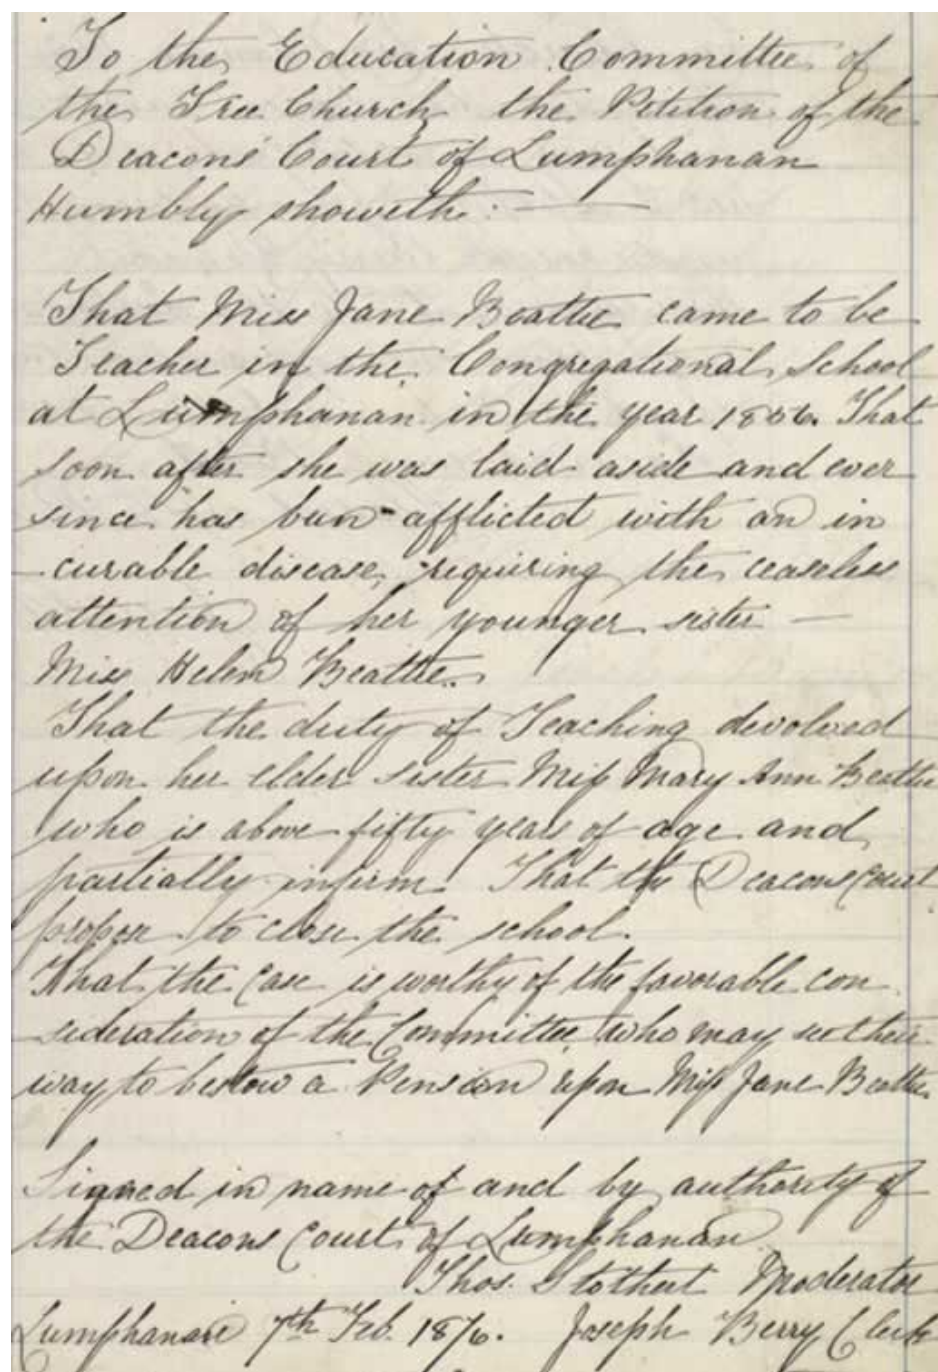 To the Education Committee of
the Free Church the Petition of the
Deacons' Court of Lumphanan
Humbly showeth: —
That Miss Jane Beattie came to be
Teacher in the Congregational School
at Lumphanan in the year 1856. That
soon after she was laid aside and ever
since has been afflicted with an in
-curable disease, requiring the ceaseless
attention of her younger sister —
Miss Helen Beattie.
That the duty of Teaching devolved
upon her elder sister Miss Mary Ann Beattie
who is above fifty years of age and
partially infirm. That the Deacons Court
propose to close the school.
That the Case is worthy of the favorable con
-sideration of the Committee, who may see their
way to bestow a Pension upon Miss Jane Beattie.
Signed in name of and by authority of
the Deacons Court of Lumphanan
Thos. Stothert Moderator
Lumphanan 7th Feb. 1876. Joseph Berry Clerk